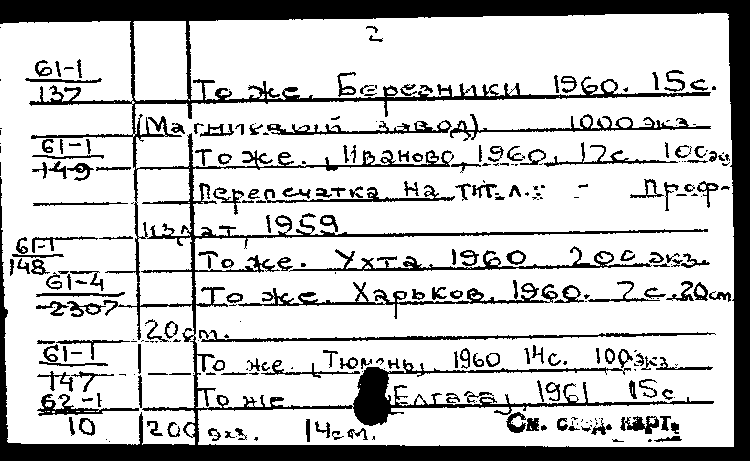 2
61-1
137 То же. Березники 1960. 15 с.
(Магниевый завод). 1000 экз.
61-1
149 То же. [Иваново, 1960, 17 с. 100 экз
Перепечатка на тит. л.: - Проф-
издат, 1959.
61-1
148 То же. Ухта. 1960. 200 экз.
61-4
2307 То же. Харьков, 1960. 7 с. 20 см
20 см.
61-1
147 То же. [Тюмень, 1960 14 с. 100 экз.
62-1
10 То же Елгава, 1961 15 с.
200 экз. 14 см.
См. след. карт.